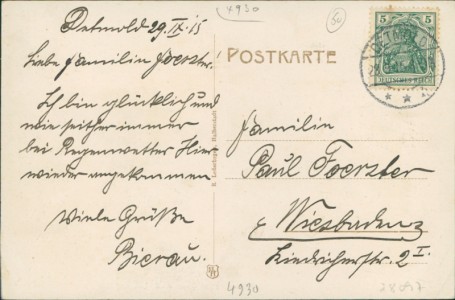 4930
50
Detmold 29.IX.15
Liebe Familie Foerster!
Ich bin glücklich und
wie seither immer
bei Regenwetter Hier
wieder angekommen
Viele Grüße
Bierau.
POSTKARTE
5 5
DETMOLD
DEUTSCHES REICH
Familie
Paul Foerster
Wiesbaden
straße 2 I.
4930